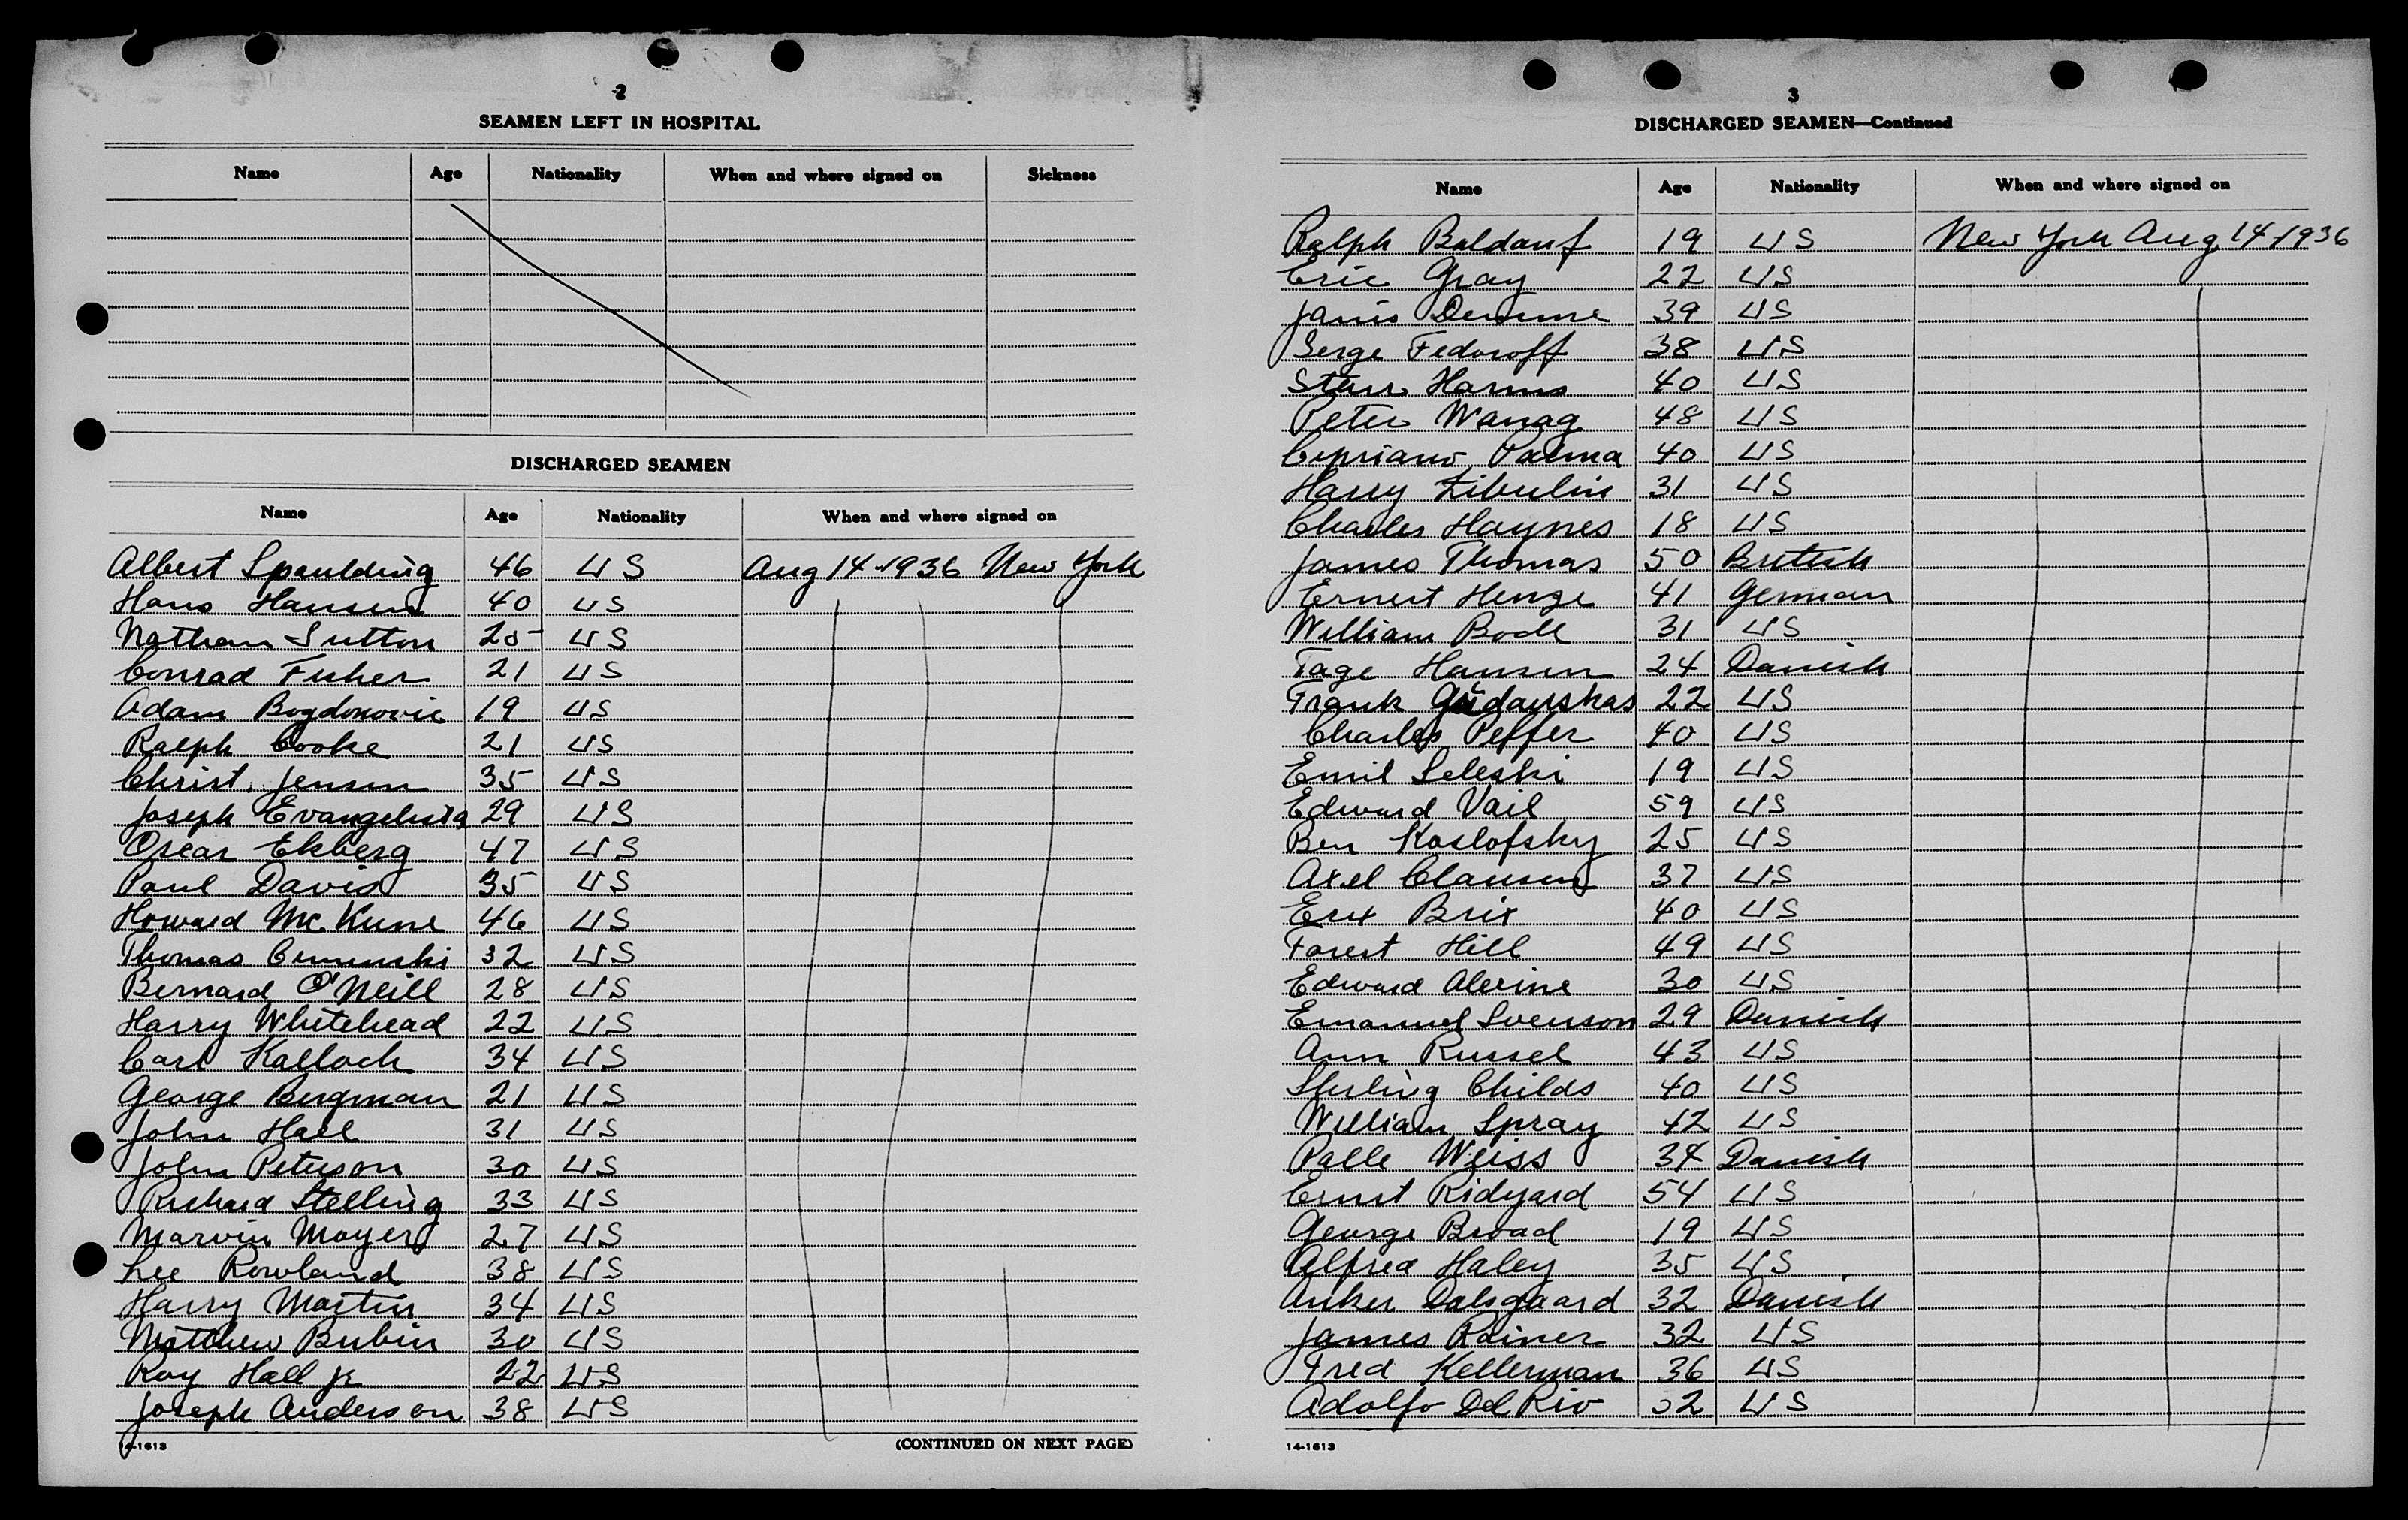 2
SEAMEN LEFT IN HOSPITAL
Name Age Nationality When and where signed on Sickness
DISCHARGED SEAMEN
Name Age Nationality When and where signed on
Albert Spaulding 46 US Aug 14-1936 New York
Hans Hansen 40 US
Nathan Sutton 25 US
Conrad Fisher 21 US
Adam Bogdonovic 19 US
Ralph Cooke 21 US
Christ. Jensen 35 US
Joseph Evangelista 29 US
Oscar Ekberg 47 US
Paul David 35 US
Howard McKune 46 US
Thomas 32 US
Bernard O'Neill 28 US
Harry Whitehead 22 US
Carl Kalloch 34 US
George Bergman 21 US
John Hall 31 US
John Peterson 30 US
Richard Stelling 33 US
Marvin Moyer 27 US
Lee Rowland 38 US
Harry Martin 34 US
Matthew Bubin 30 US
Roy Hall Jr 22 US
Joseph Anderson 38 US
14-1613 (CONTINUED ON NEXT PAGE)
3
DISCHARGED SEAMEN—Continued
Name Age Nationality When and where signed on
Ralph Baldauf 19 US New York Aug 14-1936
Eric Gray 22 US
Janis 39 US
Serge Fedoroff 38 US
Starr Harms 40 US
Peter Wanag 48 US
Cipriano Palma 40 US
Harry Zibulin 31 US
Charles Haynes 18 US
James Thomas 50 British
Ernest Henge 41 German
William Bode 31 US
Tage Hansen 24 Danish
Frank Gudauskas 22 US
Charles Peffer 40 US
Emil Seleski 19 US
Edward Vail 59 US
Ben Koslofsky 25 US
Axel Clausen 37 US
Brix 40 US
Forest Hill 49 US
Edward Alerine 30 US
Emanuel Svenson 29 Danish
Ann Russel 43 US
Sterling Childs 40 US
William Spray 42 US
Palle Weiss 34 Danish
Ernst Ridyard 54 US
George Broad 19 US
Alfred Haley 35 US
Anker Dalsgaard 32 Danish
James Rainer 32 US
Fred Kellerman 36 US
Adolfo Del Rio 52 US
14-1613